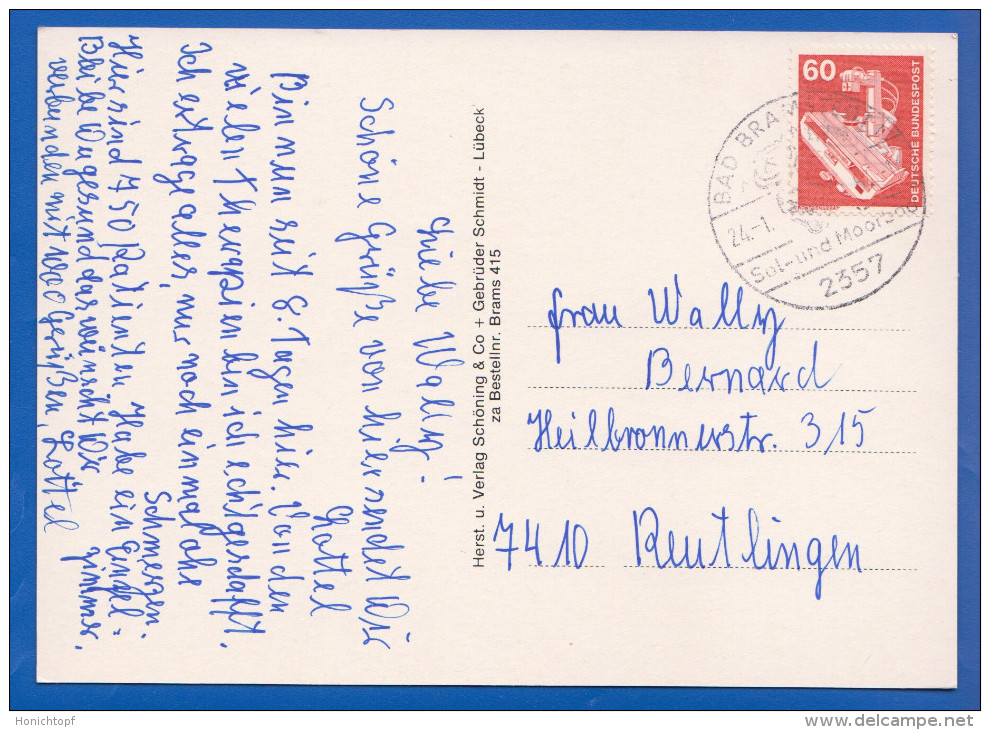 Liebe Wally!
Schöne Grüße von hier sendet Dir
Lottel
Bin nun seit 8. Tagen hier. Von den
vielen Therapien bin ich echt geschafft.
Ich ertrage alles, nur noch einmal ohne
Schmerzen.
Hier sind 450 Patienten, Habe ein Einzel=
zimmer.
Bleibe Du gesund das wünscht Dir
verbunden mit 1000 Grüßen, Lottel
Herst. u. Verlag Schöning & Co + Gebrüder Schmidt - Lübeck
za Bestellnr. Brams 415
60
DEUTSCHE BUNDESPOST
BAD BRAMSTEDT
24.-1.
Sol- und Moorbad
2357
Frau Wally
Bernard
Heilbronnerstr. 315
7410 Reutlingen
Honichtopf
www.delcampe.net